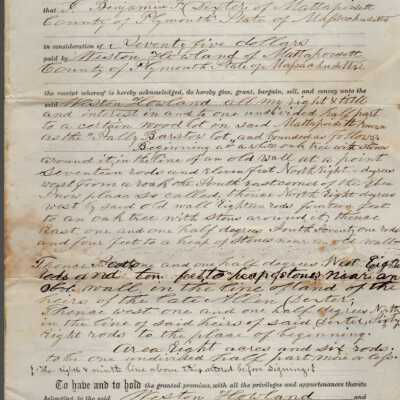 that I Benjamin F. Dexter of Mattapoisett
County of Plymouth State of Massachusetts
in consideration of Seventy five dollars
paid by Weston Howland of Mattapoisett
County of Plymouth State of Massachusetts
the receipt whereof is hereby acknowledged, do hereby give, grant, bargain, sell, and convey unto the
said Weston Howland all my right & title
and interest in and to one undivided half part
to a certain Wood lot on said Mattapoisett
as the Barstow lot, and bounded as follows
Beginning at a white oak tree with stones
around it, in the line of an old wall at a point
Seventeen rods and eleven feet North Eight degrees
West from a rock the South east corner of the
Snow place so called, thence North Eight degrees
west by said old wall Eighteen rods fourteen feet
to an oak tree with stones around it, thence
East one and one half degrees South Seventy one rods
and four feet to a heap of stones near an old wall
Thence one and one half degrees West Eighteen
rods and ten feet to heap of stones near an
old wall, in the line of land of the
heirs of the late Allen Dexter,
Thence west one and one half degrees North
in the line of said heirs of said Dexter,
Eight rods to the place of beginning.
Area Eight acres and six rods,
the one undivided half part more or less.
the 8th & ninth line above altered before signing
To have and to hold the granted premises, with all the privileges and appurtenances thereto
belonging to the said Weston Howland and